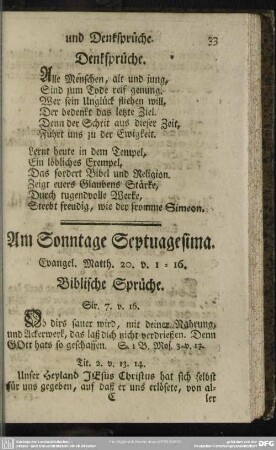 und Denksprüche. 33
Denksprüche.
Alle Menschen, alt und jung,
Sind zum Tode reif genung.
Wer sein Unglück fliehen will,
Der bedenkt das letzte Ziel.
Denn der Schrit aus dieser Zeit,
Führt uns zu der Ewigkeit.
Lernt heute in dem Tempel,
Ein löbliches Exempel,
Das fordert Bibel und Religion.
Zeigt euers Glaubens Stärke,
Durch tugendvolle Werke,
Sterbt freudig, wie der fromme Simeon.
Am Sonntage Septuagesima.
Evangel. Matth. 20. v. 1-16.
Biblische Sprüche.
Sir. 7. v. 16.
Ob dirs sauer wird, mit deiner Nahrung,
und Ackerwerk, das laß dich nicht verdrießen. Denn
GOtt hats so geschaffen. S. 1 B. Mos. 3. v. 17.
Tit. 2. v. 13. 14.
Unser Heyland JEsus Christus hat sich selbst
für uns gegeben, auf daß er uns erlösete, von al-
C ler